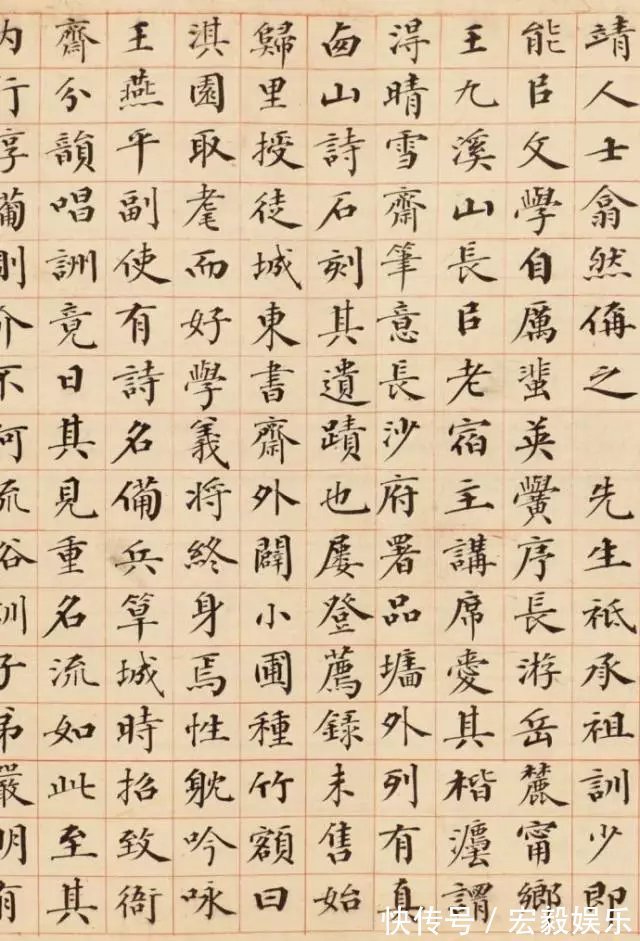 靖人士翕然偁之　先生祇承祖訓少即
能㠯文學自厲蜚英黌序長游岳麓甯鄉
王九溪山長㠯老宿主講席愛其楷灋謂
淂晴雪齋筆意長沙府署品墻外列有真
西山詩石刻其遺蹟也屢登薦錄未售始
歸里授徒城東書齋外闢小圃種竹額曰
淇園取耄而好學義將終身焉性躭吟咏
王燕平副使有詩名備兵筸城時招致衙
齋分韻唱詶竟日其見重名流如此至其
内行介不阿流俗訓子弟嚴明有
快传号/宏毅娱乐